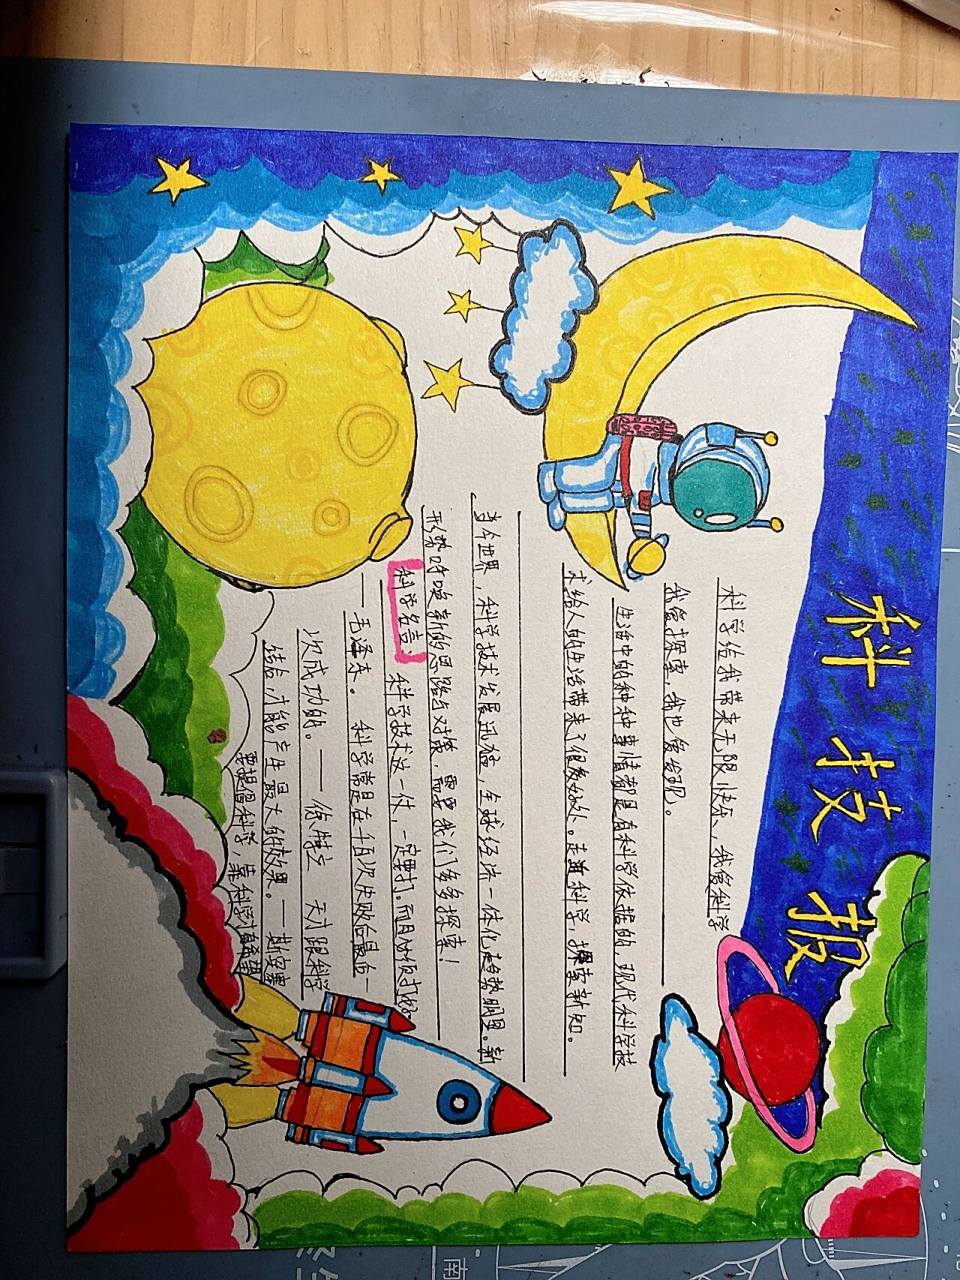 科技报
科学给我带来无限快乐、我爱科学
我爱探索,我也爱发现。
生活中的种种事情都是有科学依据的,现代科学技
术给人的生活带来了很多好处。走进科学,探索新知。
当今世界,科学技术发展迅猛,全球经济一体化趋势明显。新
形势呼唤新的思路与对策,需要我们多多探索!
科学名言: 科学技术这一仗,一定要打。而且必须打好。
—毛泽东。 科学常是在千百次失败后最后一
次成功的。——徐特立 天才跟科学
结后,才能产生最大的效果。——斯宾塞
要提倡科学,靠科学才有希望
南